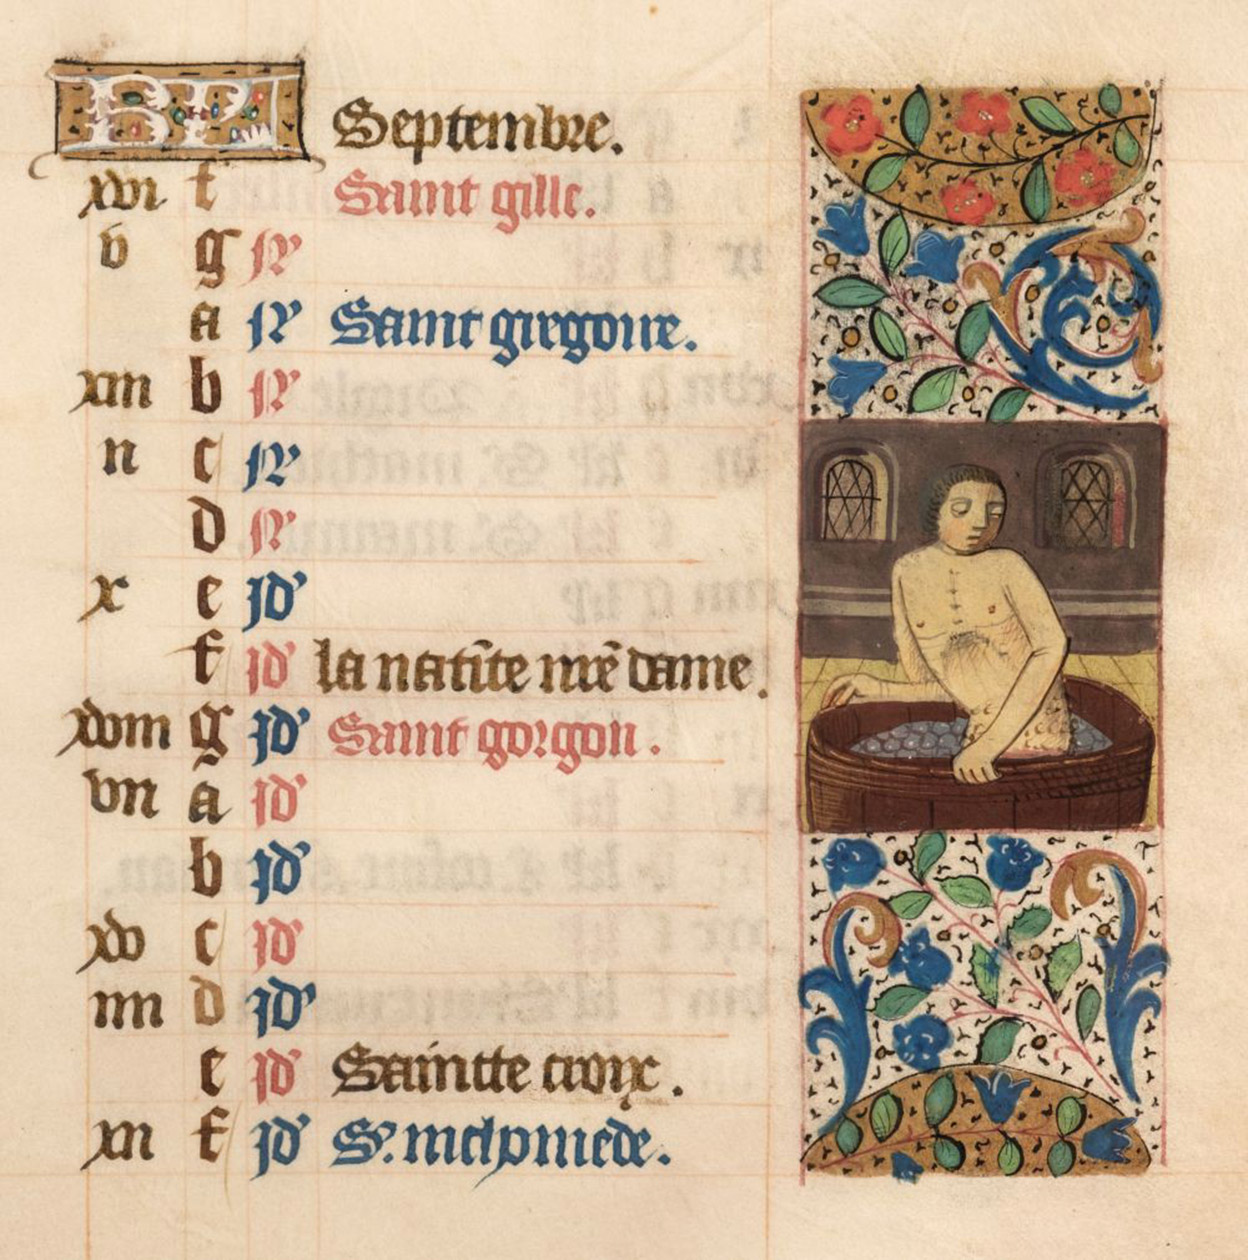 KL Septembre.
xvi f Saint gille.
v g N'
a N' Saint gregoire.
xiii b N'
ii c N'
d N'
x e jd'
f jd' la natiīte nr̄e dame.
xviii g jd' Saint gorgon.
vii a jd'
b jd'
xv c jd'
iiii d jd'
e jd' Saintte croix.
xii f jd' S'. nichomede.